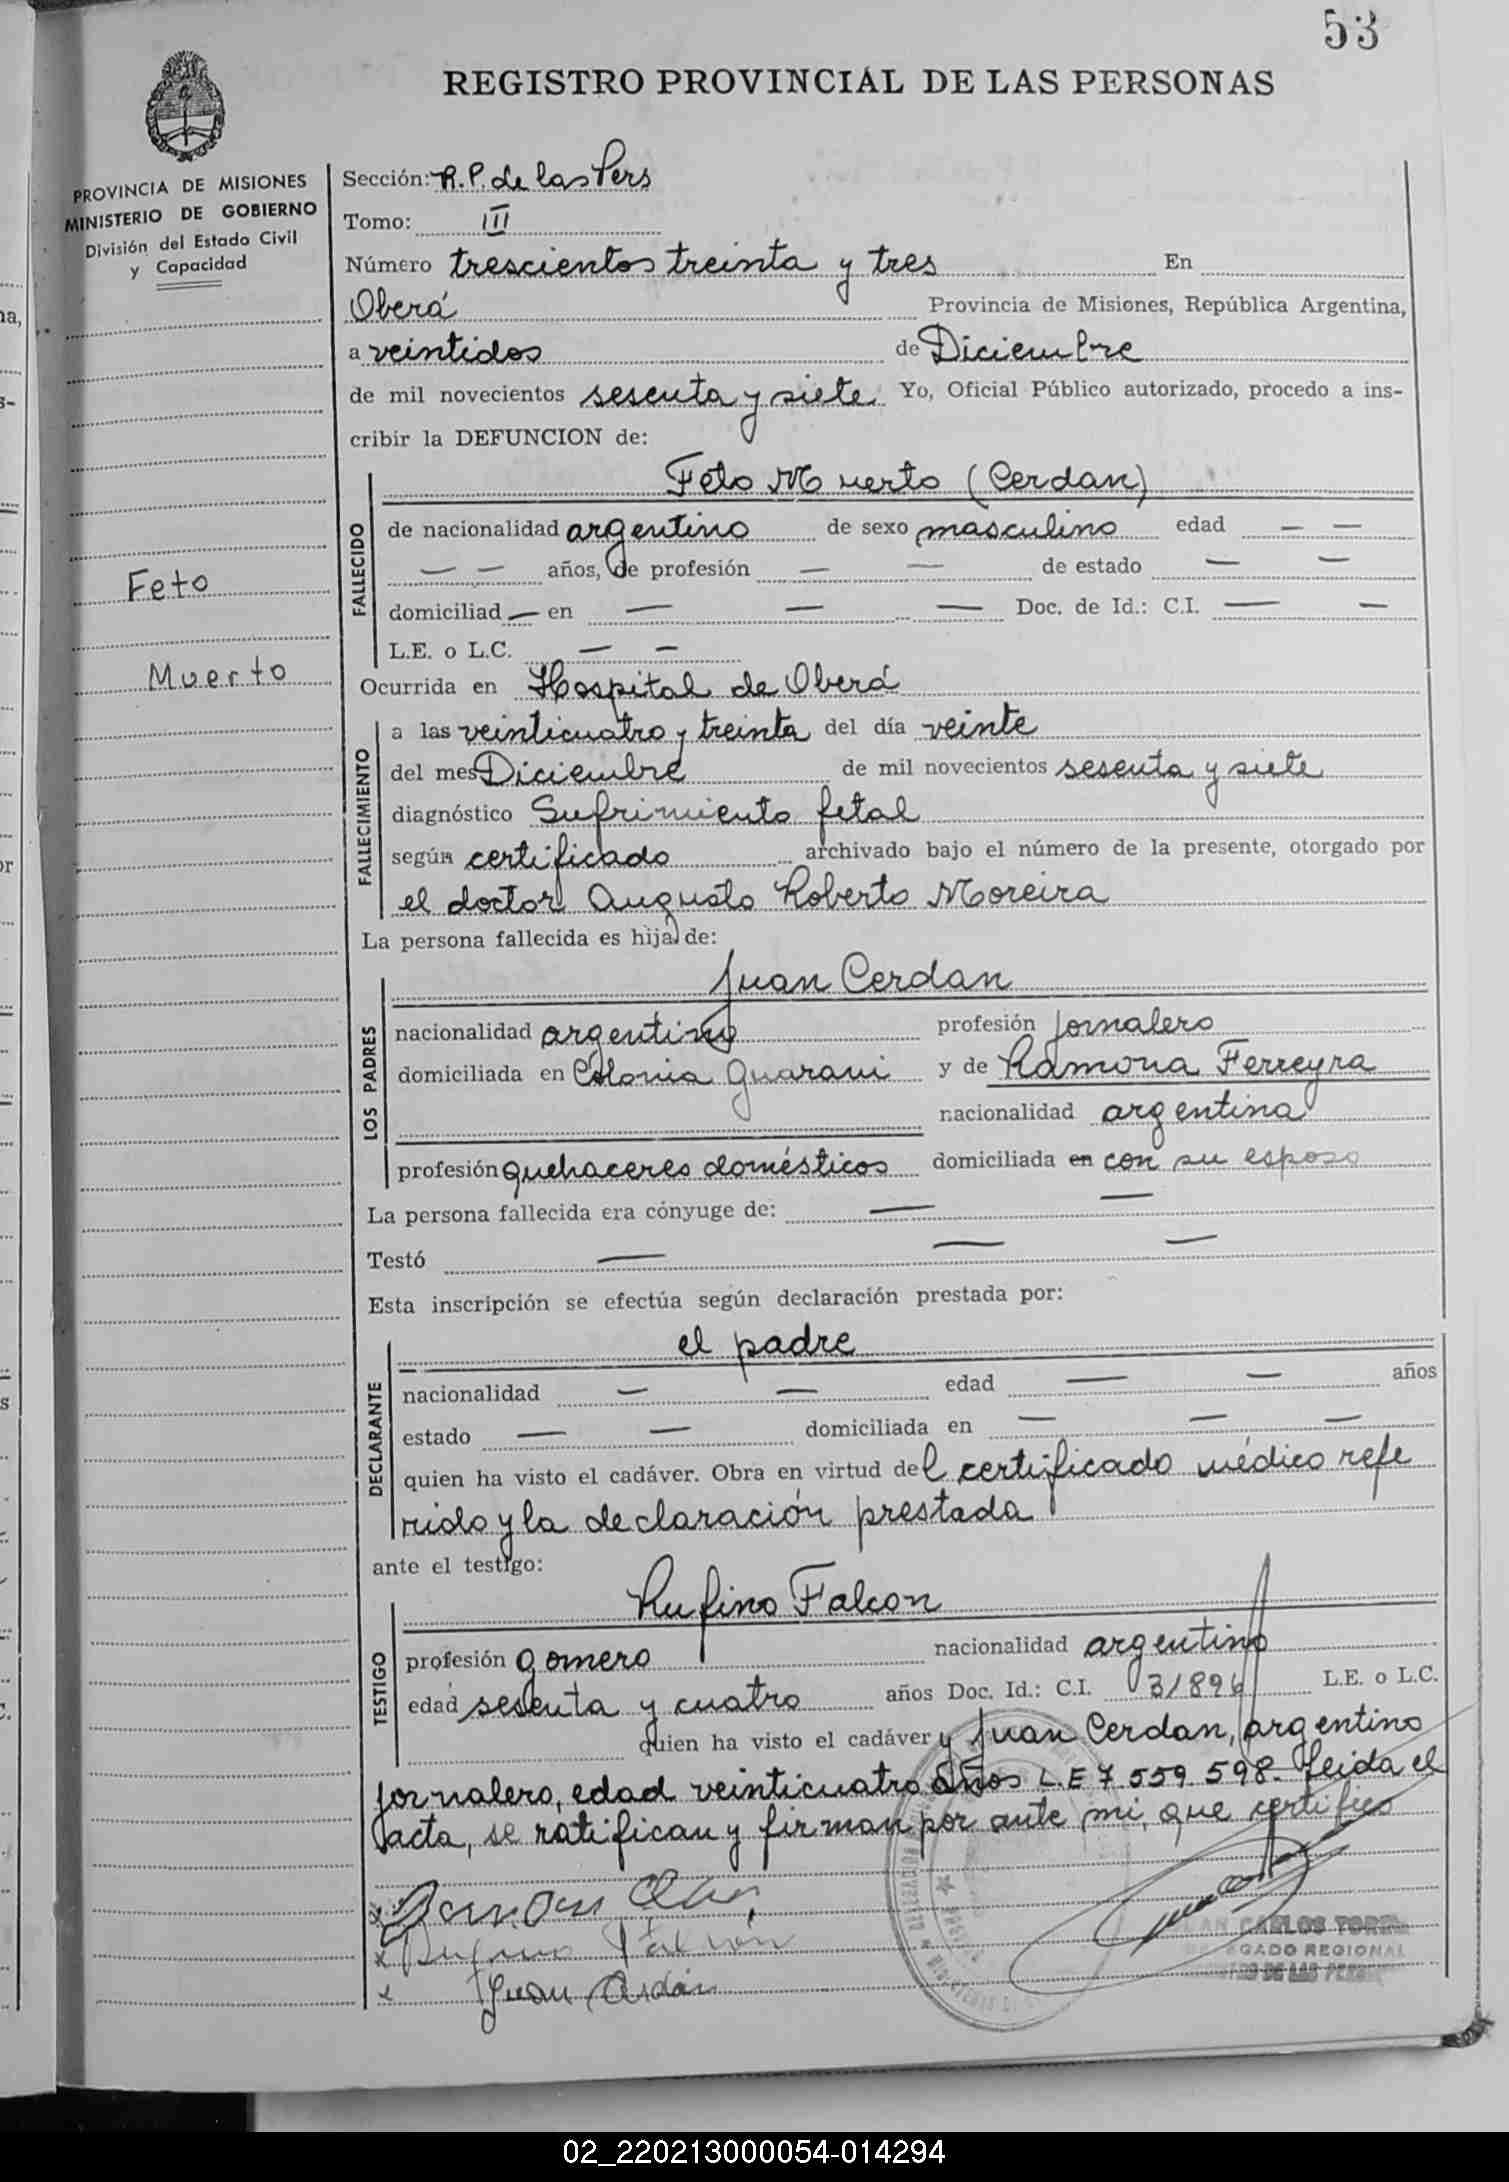 53
REGISTRO PROVINCIAL DE LAS PERSONAS
PROVINCIA DE MISIONES
MINISTERIO DE GOBIERNO
División del Estado Civil
y Capacidad
Feto
Muerto
Sección: R.P. de las Pers
Tomo: III
Número trescientos treinta y tres En
Oberá Provincia de Misiones, República Argentina,
a veintidos de Diciembre
de mil novecientos sesenta y siete Yo, Oficial Público autorizado, procedo a ins-
cribir la DEFUNCION de:
FALLECIDO
Feto Muerto (Cerdan)
de nacionalidad argentino de sexo masculino edad — —
— — años, de profesión — — de estado — —
domiciliad — en — — — Doc. de Id.: C.I. — —
L.E. o L.C. — —
Ocurrida en Hospital de Oberá
FALLECIMIENTO
a las veinticuatro y treinta del día veinte
del mes Diciembre de mil novecientos sesenta y siete
diagnóstico Sufrimiento fetal
según certificado archivado bajo el número de la presente, otorgado por
el doctor Augusto Roberto Moreira
La persona fallecida es hija de:
LOS PADRES
Juan Cerdan
nacionalidad argentino profesión jornalero
domiciliada en Colonia Guarani y de Ramona Ferreyra
nacionalidad argentina
profesión quehaceres domésticos domiciliada en con su esposo
La persona fallecida era cónyuge de: — —
Testó — — —
Esta inscripción se efectúa según declaración prestada por:
DECLARANTE
el padre
nacionalidad — — edad — — años
estado — — domiciliada en — — —
quien ha visto el cadáver. Obra en virtud del certificado médico refe
rido y la declaración prestada
ante el testigo:
TESTIGO
Rufino Falcon
profesión gomero nacionalidad argentino
edad sesenta y cuatro años Doc. Id.: C.I. 31896 L.E. o L.C.
quien ha visto el cadáver y Juan Cerdan, argentino
jornalero, edad veinticuatro años L.E 7 559 598. Leida el
acta, se ratifican y firman por ante mi, que certifico
x
x Rufino Falcon
x Juan Cerdán
JUAN CARLOS
DELEGADO REGIONAL
DE LAS
02_220213000054-014294